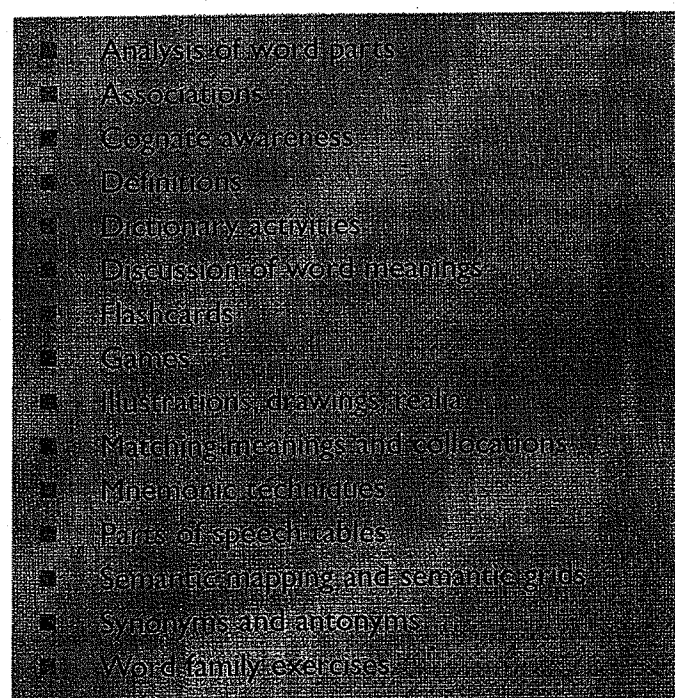 ■ Analysis of word parts
■ Associations
■ Cognate awareness
■ Definitions
■ Dictionary activities
■ Discussion of word meanings
■ Flashcards
■ Games
■ Illustrations, drawings, realia
■ Matching meanings and collocations
■ Mnemonic techniques
■ Parts of speech tables
■ Semantic mapping and semantic grids
■ Synonyms and antonyms
■ Word family exercises